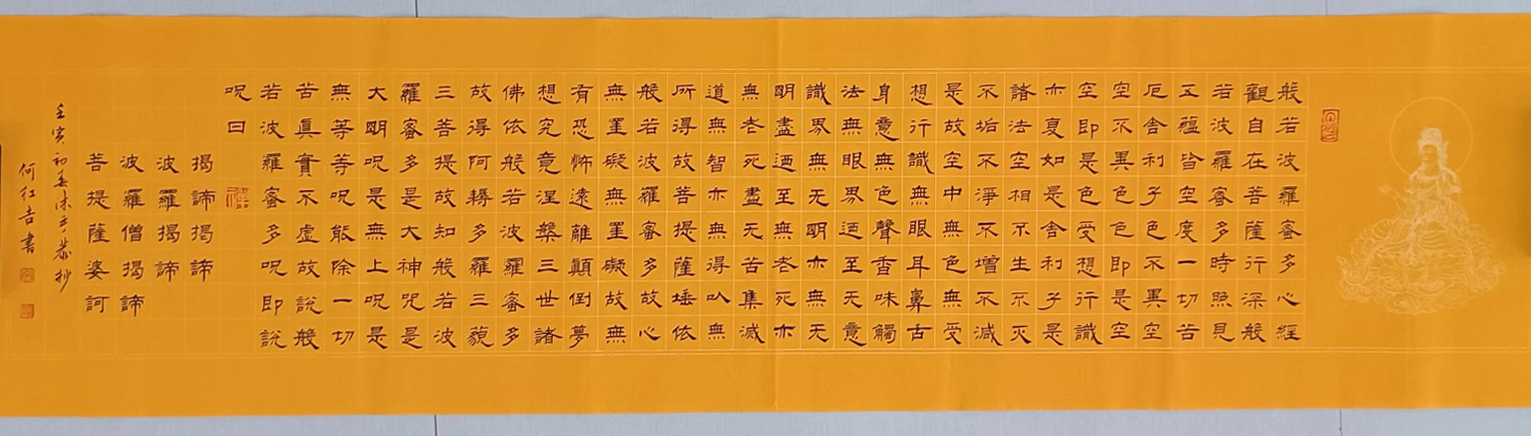 般若波羅蜜多心經
觀自在菩薩行深般
若波羅蜜多時照見
五蘊皆空度一切苦
厄舍利子色不異空
空不異色色即是空
空即是色受想行識
亦夏如是舍利子是
諸法空相不生不灭
不垢不淨不增不減
是故空中無色無受
想行識無眼耳鼻舌
身意無色聲香味觸
法無眼界迺至无意
識界無无明亦無无
明盡迺至無老死亦
無老死盡无苦集滅
道無智亦無得以無
所得故菩提薩埵依
般若波羅蜜多故心
無罣礙無罣礙故無
有恐怖遠離顛倒夢
想究竟涅槃三世諸
佛依般若波羅蜜多
故得阿耨多羅三藐
三菩提故知般若波
羅蜜多是大神咒是
大明呪是無上呪是
無等等呪能除一切
苦真實不虛故說般
若波羅蜜多呪即說
呪曰
揭諦揭諦
波羅揭諦
波羅僧揭諦
菩提薩婆訶
壬寅初春沐手恭抄
何红吉書